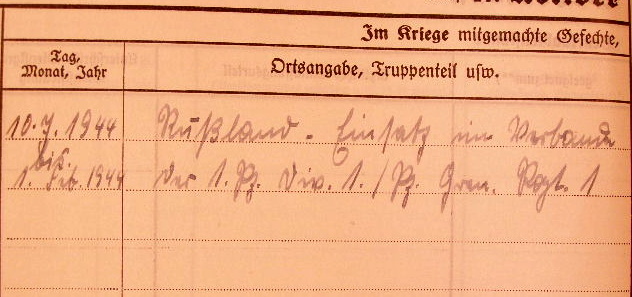 Im Kriege mitgemachte Gefechte,
Tag,
Monat, Jahr
Ortsangabe, Truppenteil usw.
10.7.1944 Rußland - Einsatz im Verbande
bis
1. Feb. 1944 der 1. Pz. Div. 1./Pz. Gren. Rgt. 1